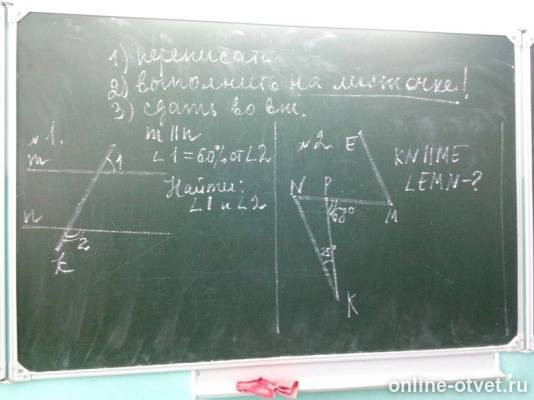 1) переписать
2) выполнить на листочке!
3) сдать во вт.
№1.
m || n
∠1 = 60% от ∠2
Найти:
∠1 и ∠2
m
1
n
2
k
№2.
E
KN || ME
∠EMN - ?
N P
M
25°
K
online-otvet.ru